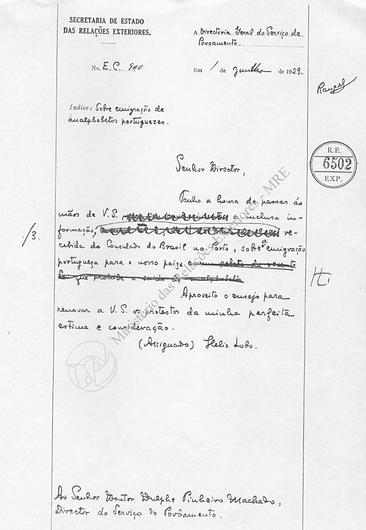 SECRETARIA DE ESTADO
DAS RELAÇÕES EXTERIORES.
A Directoria Geral do Serviço de
Povoamento.
No. E.C. 900
Em 1 de Junho de 1929.
Indice: Sobre emigração de
analphabetos portuguezes.
R.E.
6502
EXP.
Senhor Director,
Tenho a honra de passar ás
mãos de V.S. a inclusa in-
formação, re-
cebida do Consulado do Brasil no Porto, sobre emigração
portugueza para o nosso paiz,
/3.
Aproveito o ensejo para
renovar a V. S. os protestos da minha perfeita
estima e consideração.
(Assignado) Helio Lobo.
Ministério das Relações Exteriores - MRE
Ao Senhor Doutor Dulphe Pinheiro Machado,
Director do Serviço do Povôamento.